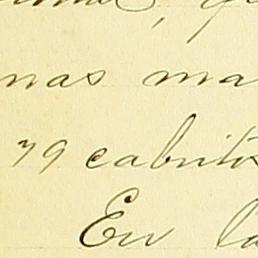 nas ma
79 cabrito
En la